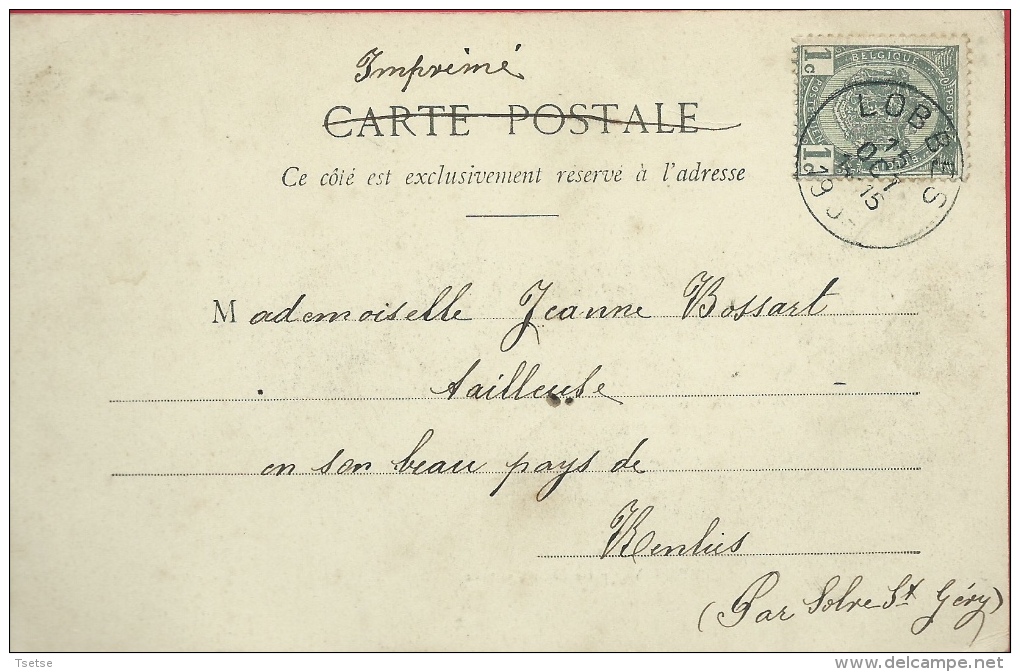 Imprimé
CARTE POSTALE
Ce côté est exclusivement réservé à l'adresse
1c BELGIQUE
1c
LOBBES
15
OCT
15
190
Mademoiselle Jeanne Bossart
tailleuse
en son beau pays de
Renlies
(Par Solre St Géry)
Tsetse
delcampe.net